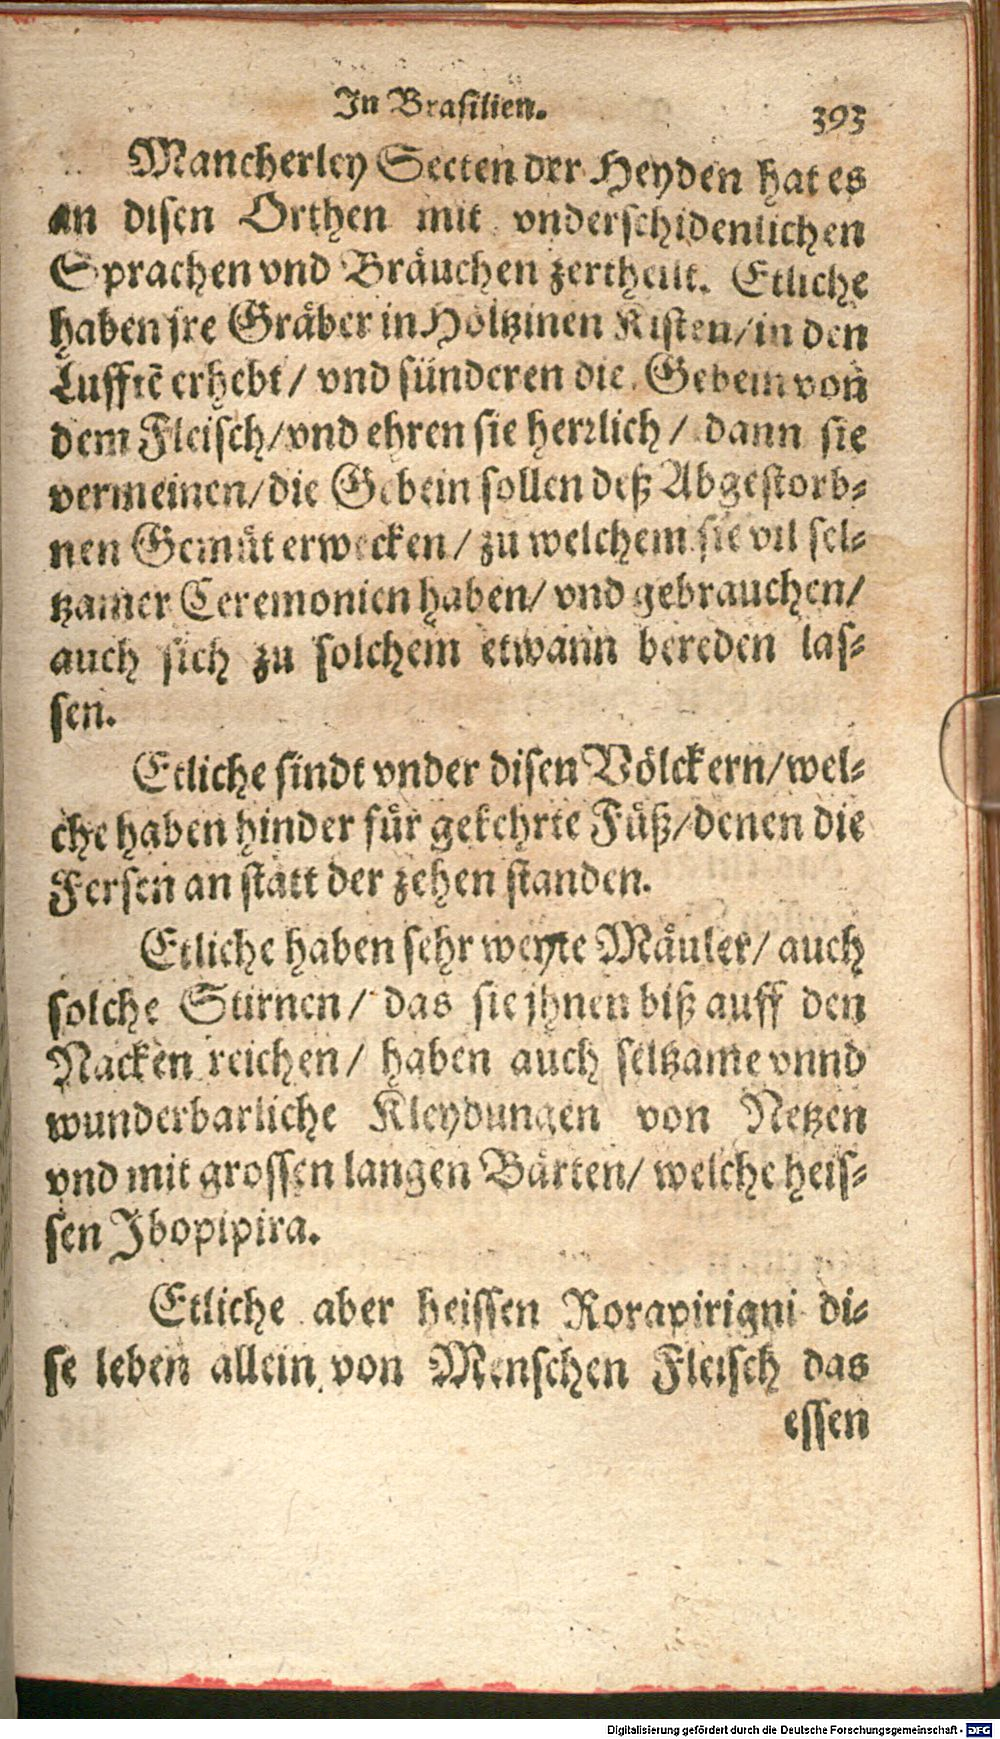 In Brasilien.
393
Mancherley Secten der Heyden hat es
an disen Orthen mit vnderschidenlichen
Sprachen vnd Bräuchen zertheilt. Etliche
haben jre Gräber in Höltzinen Kisten/ in den
Lufftẽ erhebt/ vnd sünderen die Gebein von
dem Fleisch/ vnd ehren sie herrlich/ dann sie
vermeinen/ die Gebein sollen deß Abgestorb-
nen Gemüt erwecken/ zu welchem sie vil sel-
tzamer Ceremonien haben/ vnd gebrauchen/
auch sich zu solchem etwann bereden las-
sen.
Etliche sindt vnder disen Völckern/ wel-
che haben hinder für gekehrte Füß/ denen die
Fersen an statt der zehen standen.
Etliche haben sehr weyte Mäuler/ auch
solche Stirnen/ das sie jhnen biß auff den
Nacken reichen/ haben auch seltzame vnnd
wunderbarliche Kleydungen von Netzen
vnd mit grossen langen Bärten/ welche heis-
sen Ibopipira.
Etliche aber heissen Rorapirigni di-
se leben allein von Menschen Fleisch das
essen
Digitalisierung gefördert durch die Deutsche Forschungsgemeinschaft - DFG